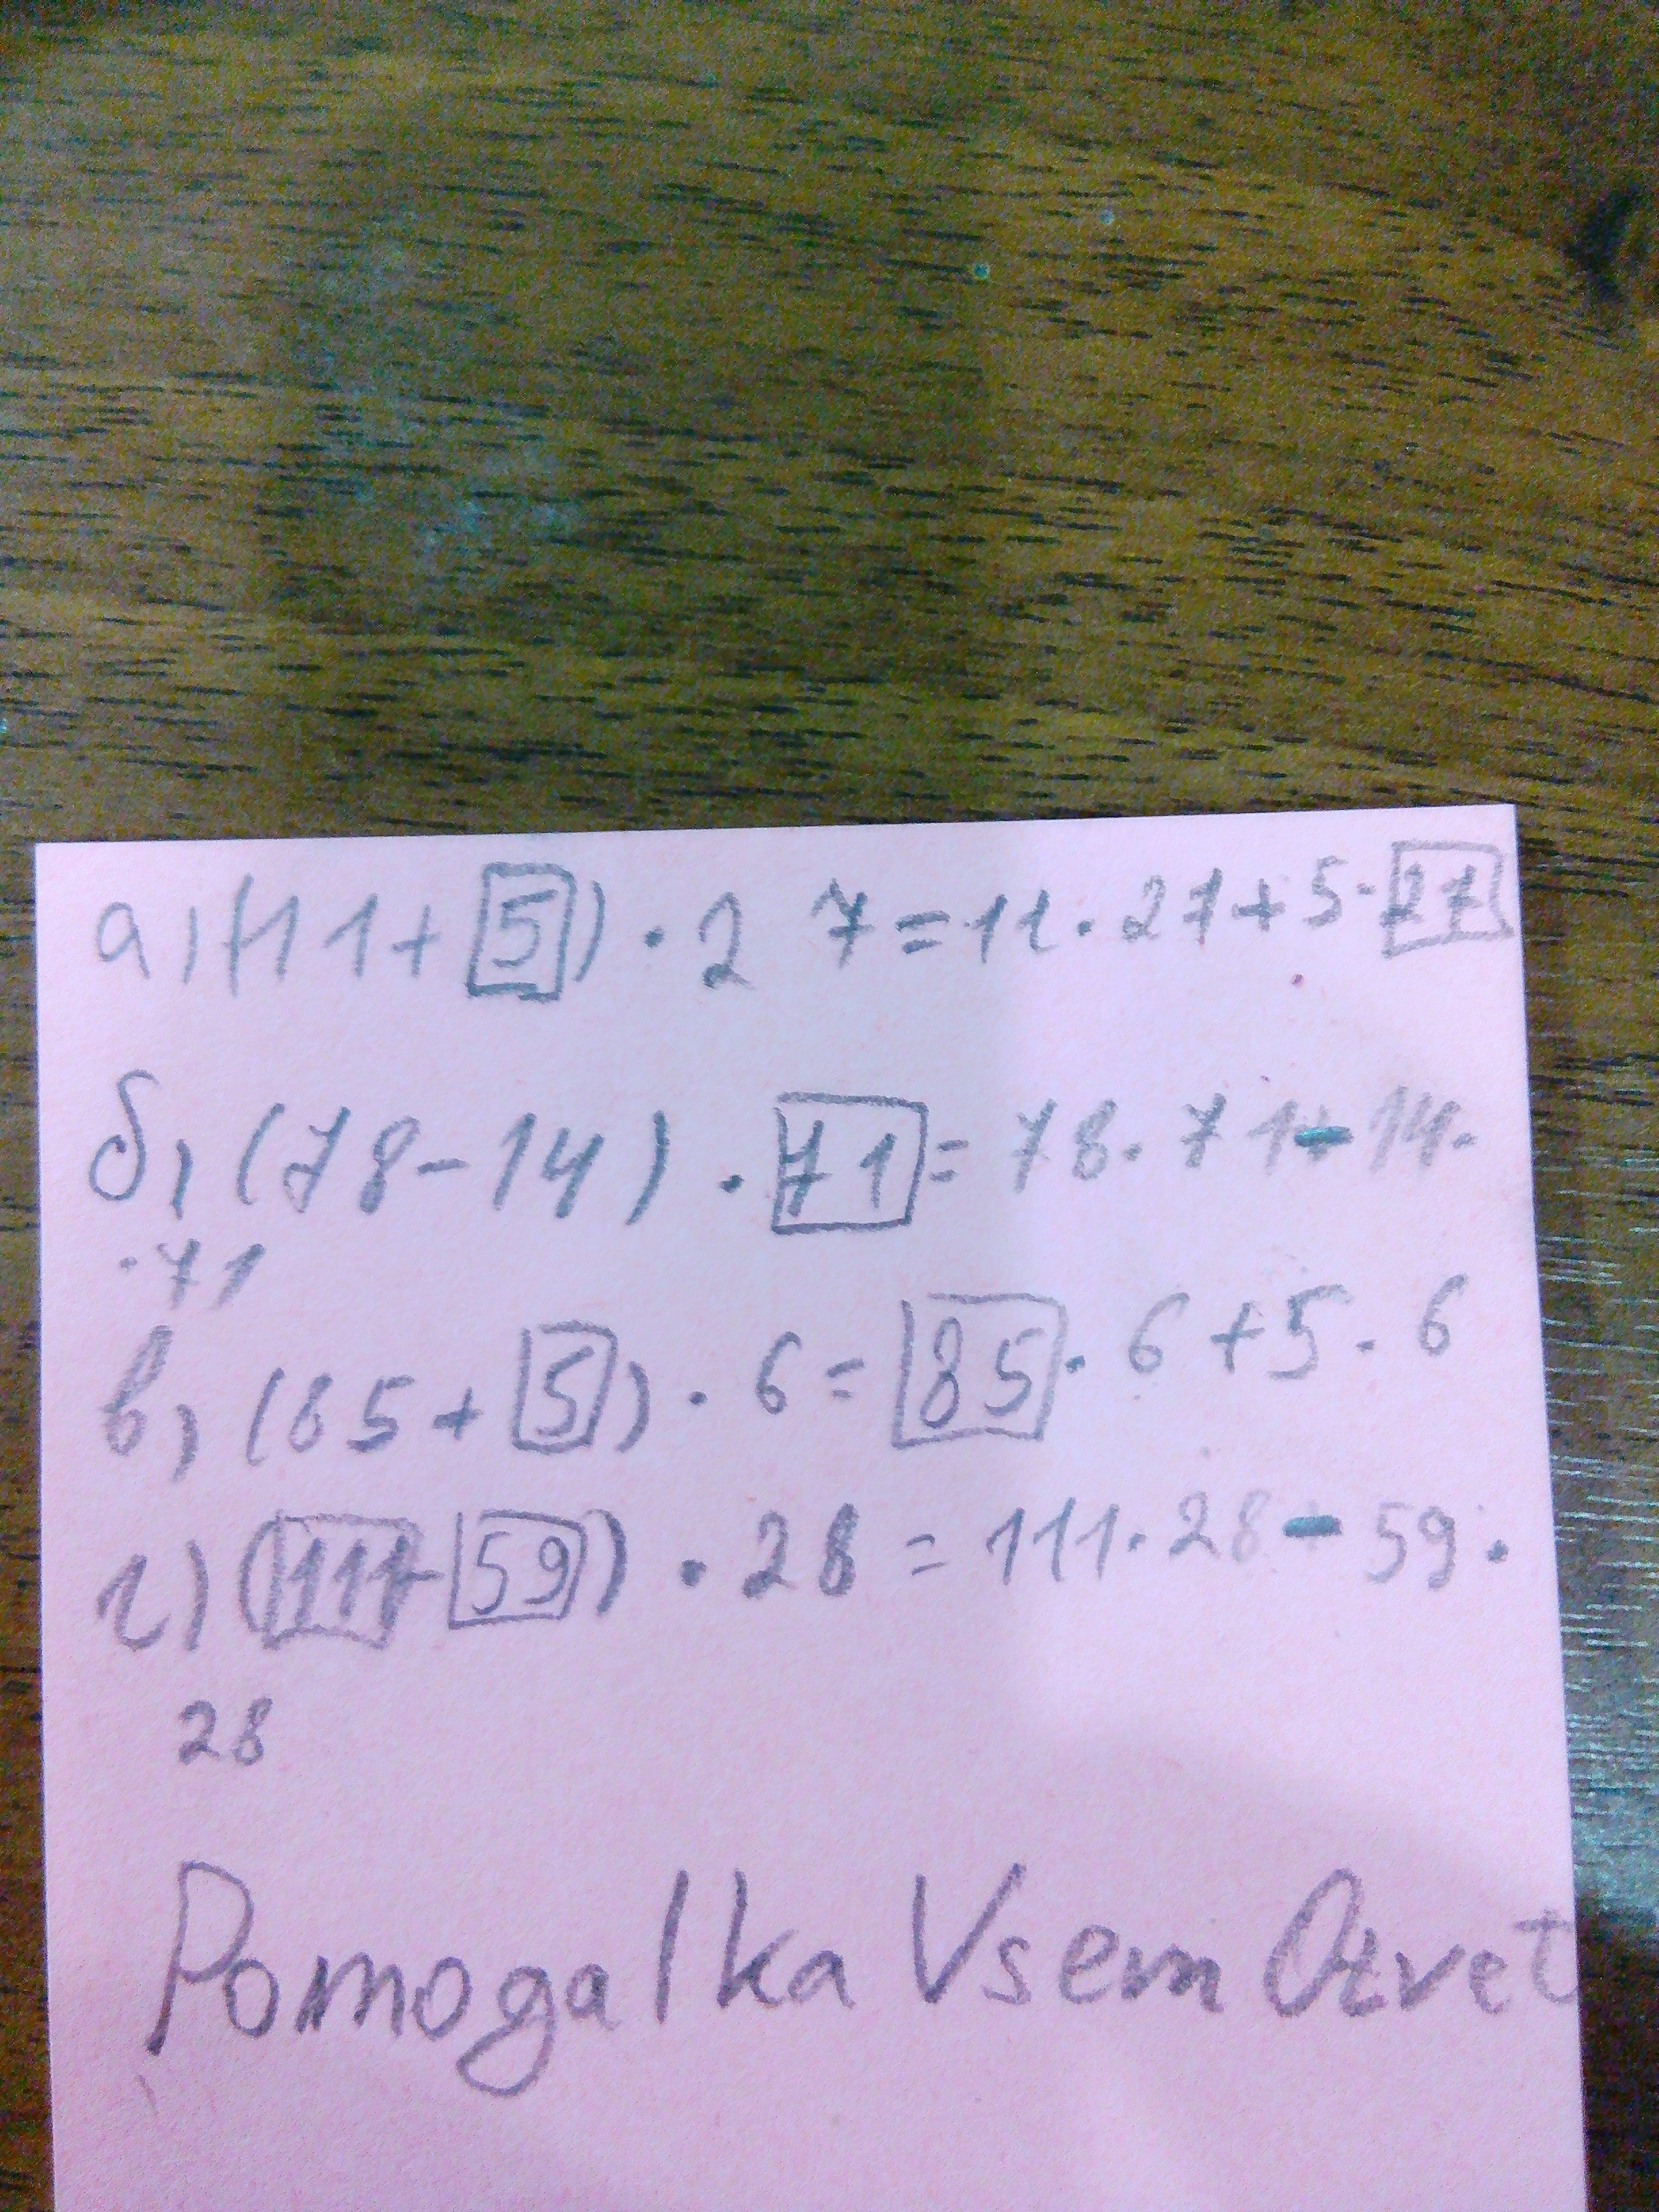 а) (11+5) · 27=11·27+5·27
б) (78-14) · 71=78·71-14·
·71
в) (85+5) · 6=85·6+5·6
г) (111-59) · 28=111·28-59·
28
Pomogalka Vsem Otvet